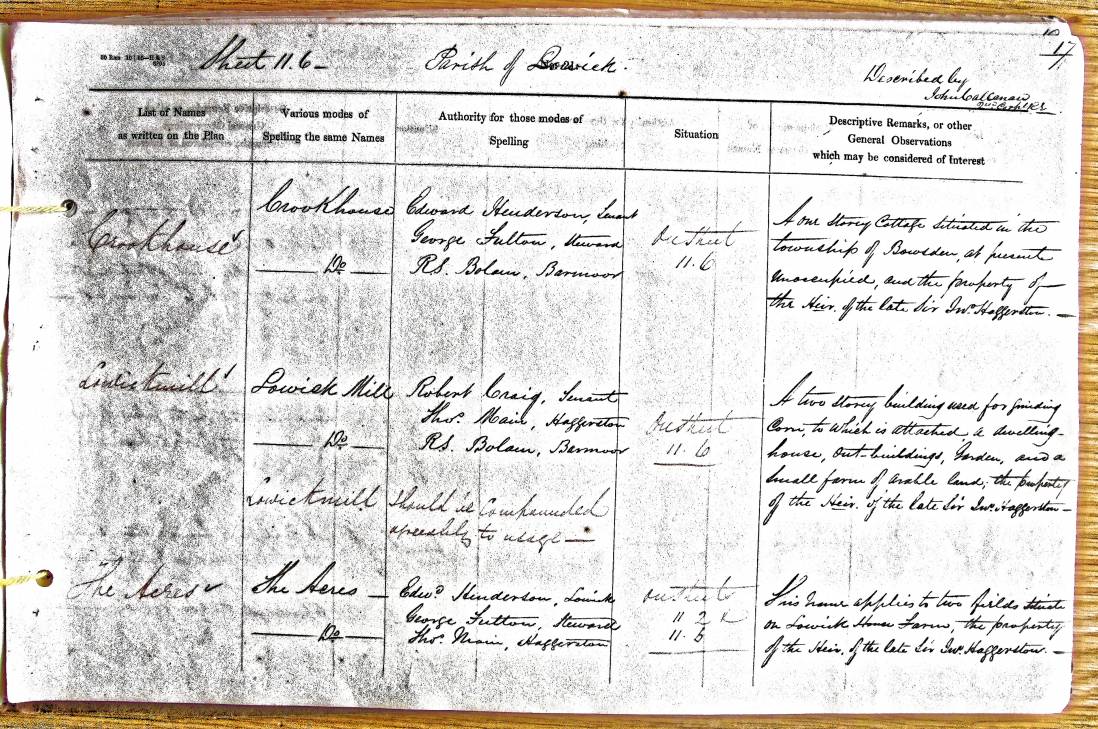 10
17
Sheet 11.6 —
Parish of Lowick.
Described by
2nd Corpl R.E.
List of Names
as written on the Plan
Various modes of
Spelling the same Names
Authority for those modes of
Spelling
Situation
Descriptive Remarks, or other
General Observations
which may be considered of Interest
Crookhouse
Crookhouse
Do
Edward Henderson, Tenant
George Fulton, Steward
R.S. Bolam, Barmoor
On Sheet
11.6
A one Storey Cottage Situated in the
township of Bowsden, at present
unoccupied, and the property of —
the Heir. of the late Sir Jno. Haggerston. —
Lowickmill
Lowick Mill
Do
Lowickmill
Robert Craig, Tenant
Thos. Main, Haggerston
R.S. Bolam, Barmoor
should be compounded
agreeably to usage —
On Sheet
11.6
A two storey building used for grinding
Corn, to which is attached, a dwelling-
house, Out-buildings, Garden, and a
small farm of arable land; the property
of the Heir. of the late Sir Jno. Haggerston —
The Acres
The Acres —
Do
Edwd. Henderson, Lowick
George Fulton, Steward
Thos. Main, Haggerston
On Sheets
11 2 &
11.6
This name applies to two fields situate
on Lowick Farm, the property
of the Heir. of the late Sir Jno. Haggerston. —